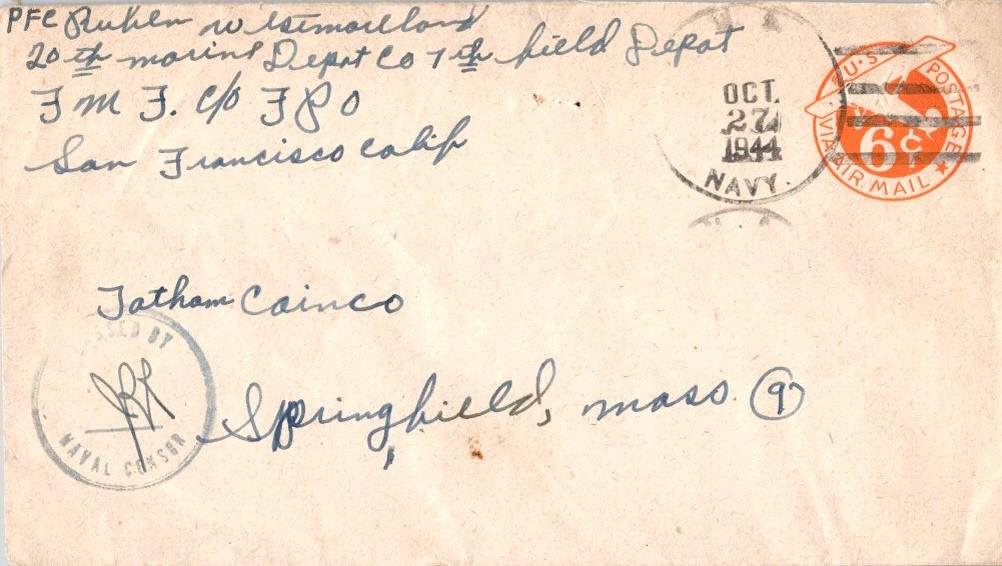 PFC Ruben Westmoreland
20th marine Depot Co 7th field Depot
F M F. c/o F P O
San Francisco Calif
U.S. POSTAGE
6¢
VIA AIR MAIL
OCT.
27
1944
NAVY.
Tatham Coinco
SED BY
NAVAL CENSOR
Springfield, mass (9)